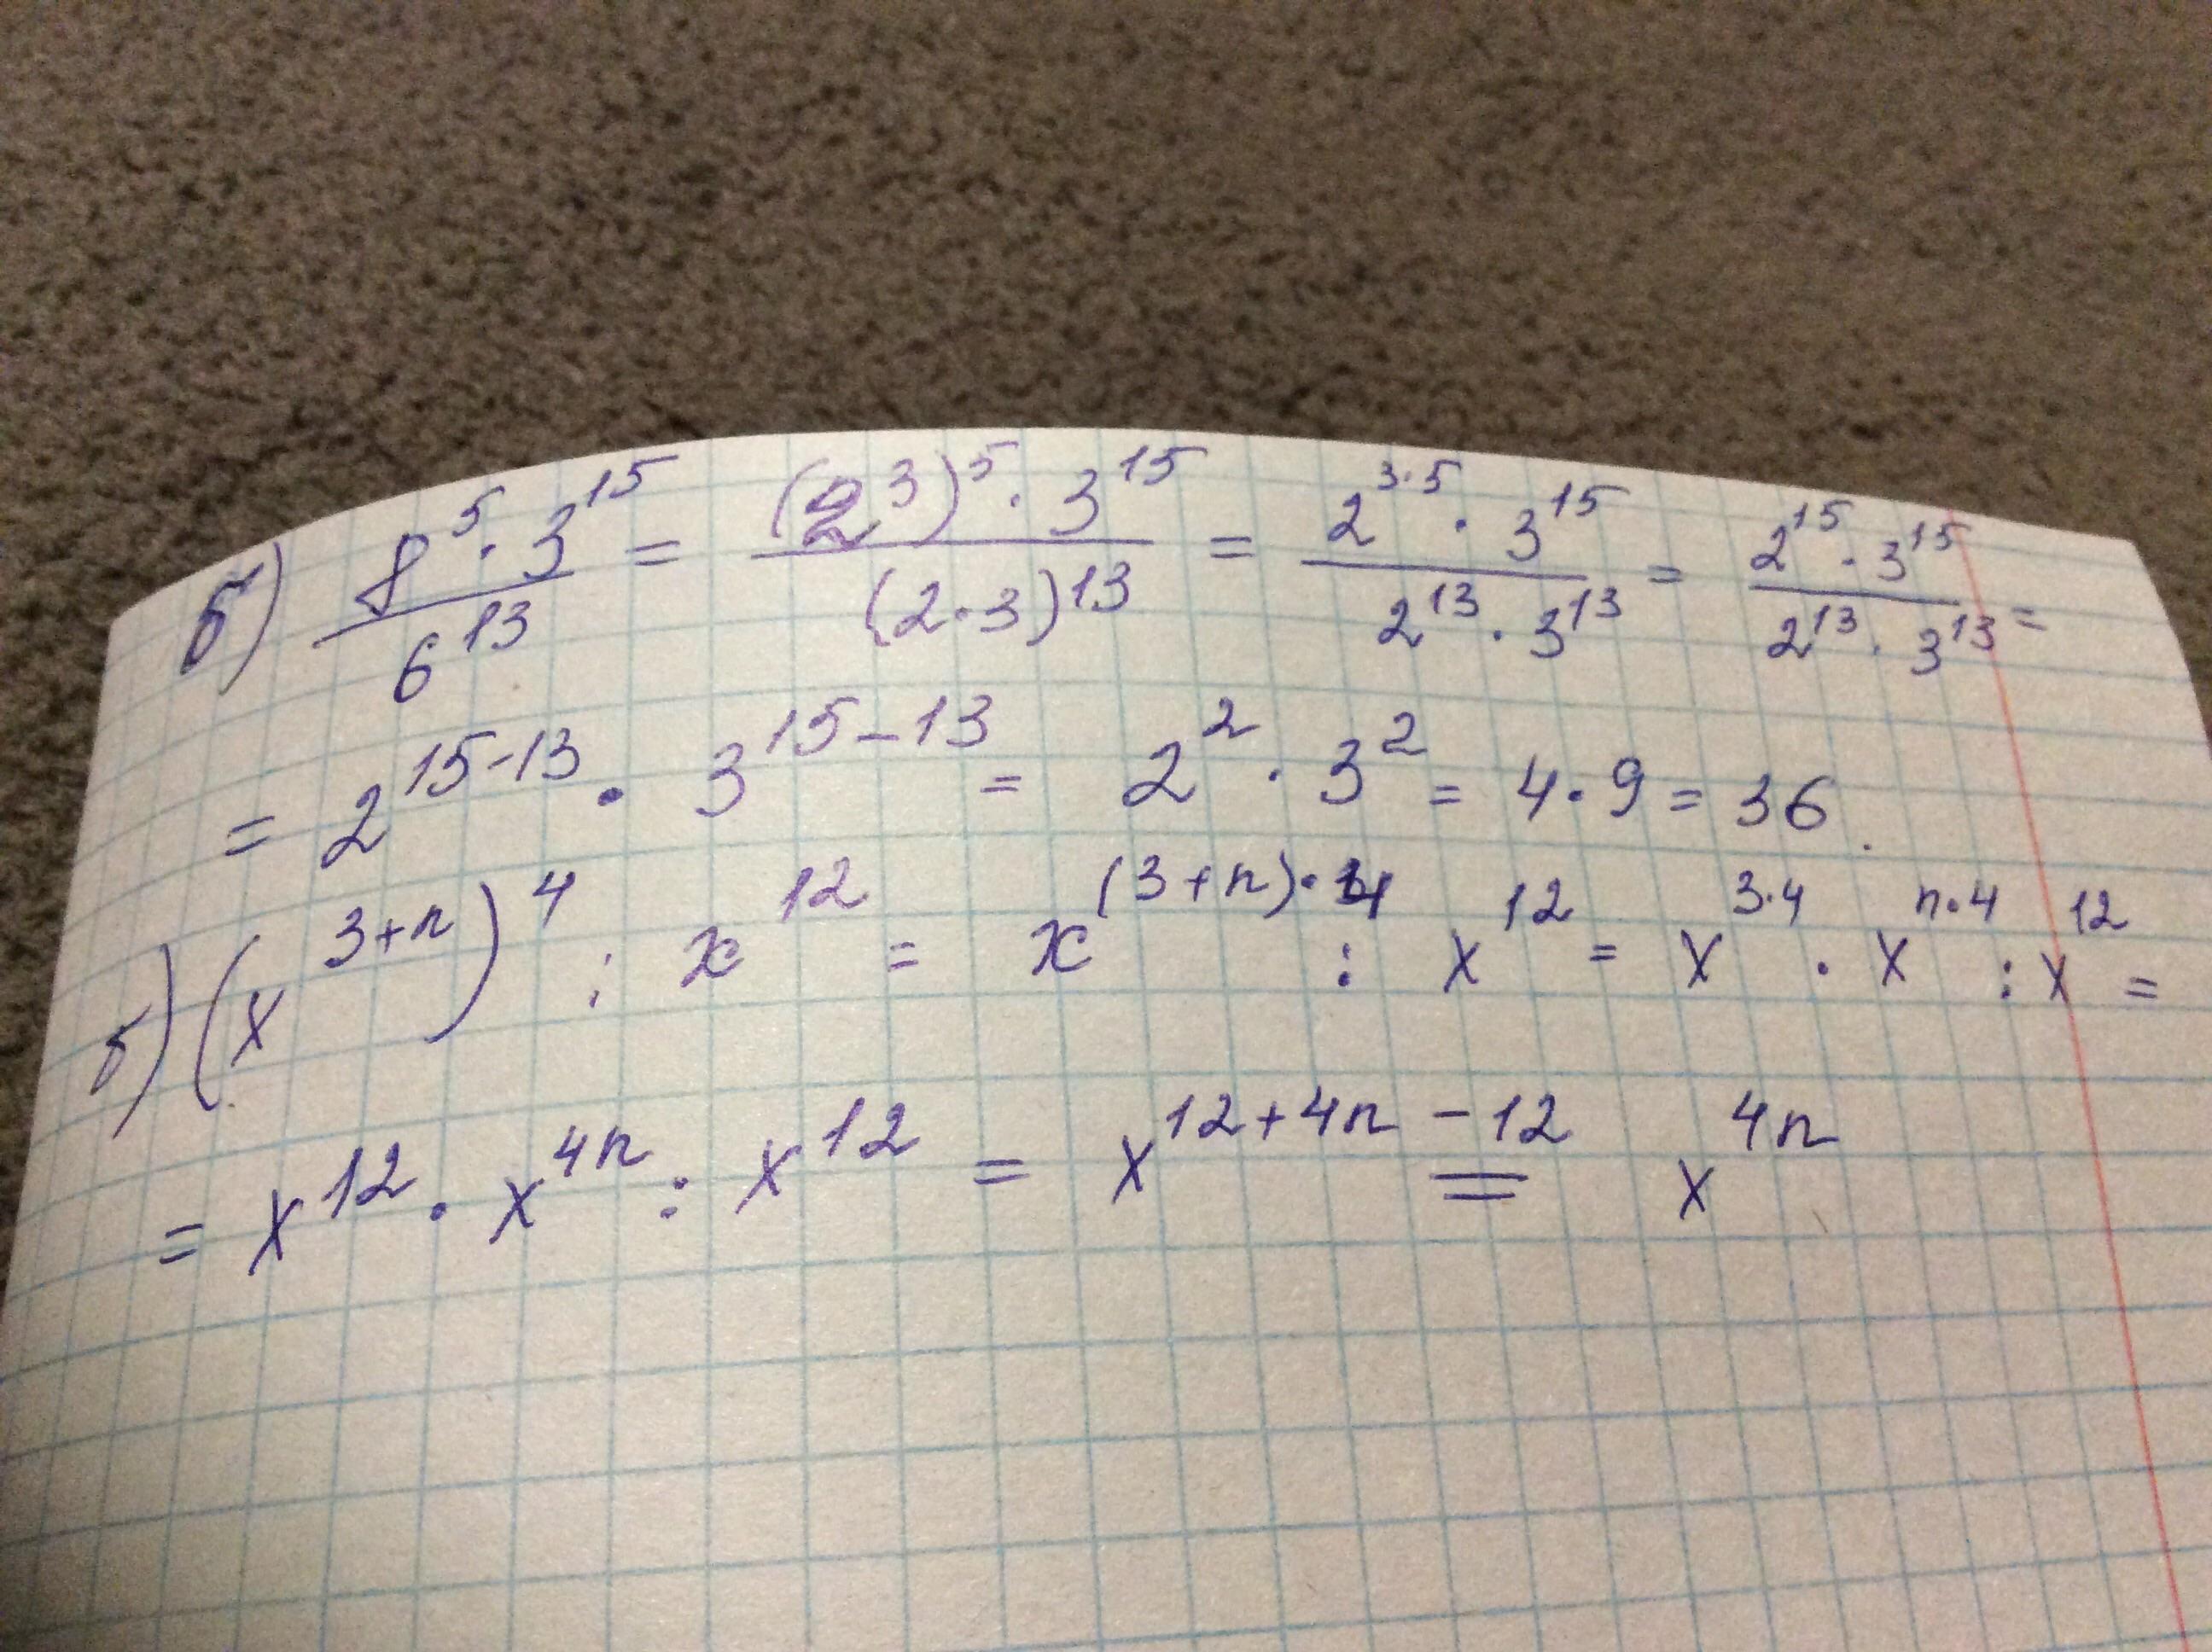 б) 8⁵ · 3¹⁵ / 6¹³ = (2³)⁵ · 3¹⁵ / (2 · 3)¹³ = 2³·⁵ · 3¹⁵ / 2¹³ · 3¹³ = 2¹⁵ · 3¹⁵ / 2¹³ · 3¹³ =
= 2¹⁵⁻¹³ · 3¹⁵⁻¹³ = 2² · 3² = 4 · 9 = 36.
б) (x³⁺ⁿ)⁴ : x¹² = x⁽³⁺ⁿ⁾·⁴ : x¹² = x³·⁴ · xⁿ·⁴ : x¹² =
= x¹² · x⁴ⁿ : x¹² = x¹²⁺⁴ⁿ⁻¹² = x⁴ⁿ